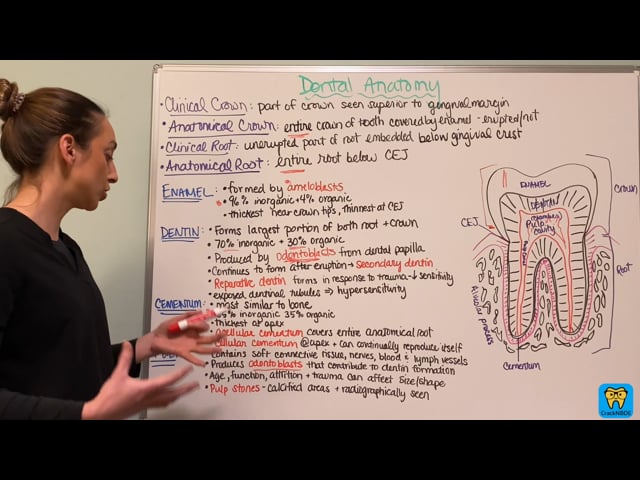 Dental Anatomy
• Clinical Crown: part of crown seen superior to gingival margin
• Anatomical Crown: entire crown of tooth covered by enamel - erupted/not
• Clinical Root: unerupted part of root embedded below gingival crest
• Anatomical Root: entire root below CEJ
ENAMEL: • formed by ameloblasts
• 96% inorganic + 4% organic
• thickest near crown tips, thinnest at CEJ
DENTIN: • Forms largest portion of both root + crown
• 70% inorganic + 30% organic
• Produced by odontoblasts from dental papilla
• Continues to form after eruption → secondary dentin
• Reparative dentin forms in response to trauma - ↓ sensitivity
• exposed dentinal tubules ⇒ hypersensitivity
CEMENTUM: • most similar to bone
5% inorganic 35% organic
• Thickest at apex
• Acellular cementum covers entire anatomical root
Cellular cementum @ apex + can continually reproduce itself
contains soft connective tissue, nerves, blood + lymph vessels
• Produces odontoblasts that contribute to dentin formation
• Age, function, attrition + trauma can affect size/shape
• Pulp stones - calcified areas + radiographically seen
ENAMEL
DENTIN
Chamber
Pulp
cavity
CEJ
Crown
Root
Alveolar process
Cementum
CrackNBDE